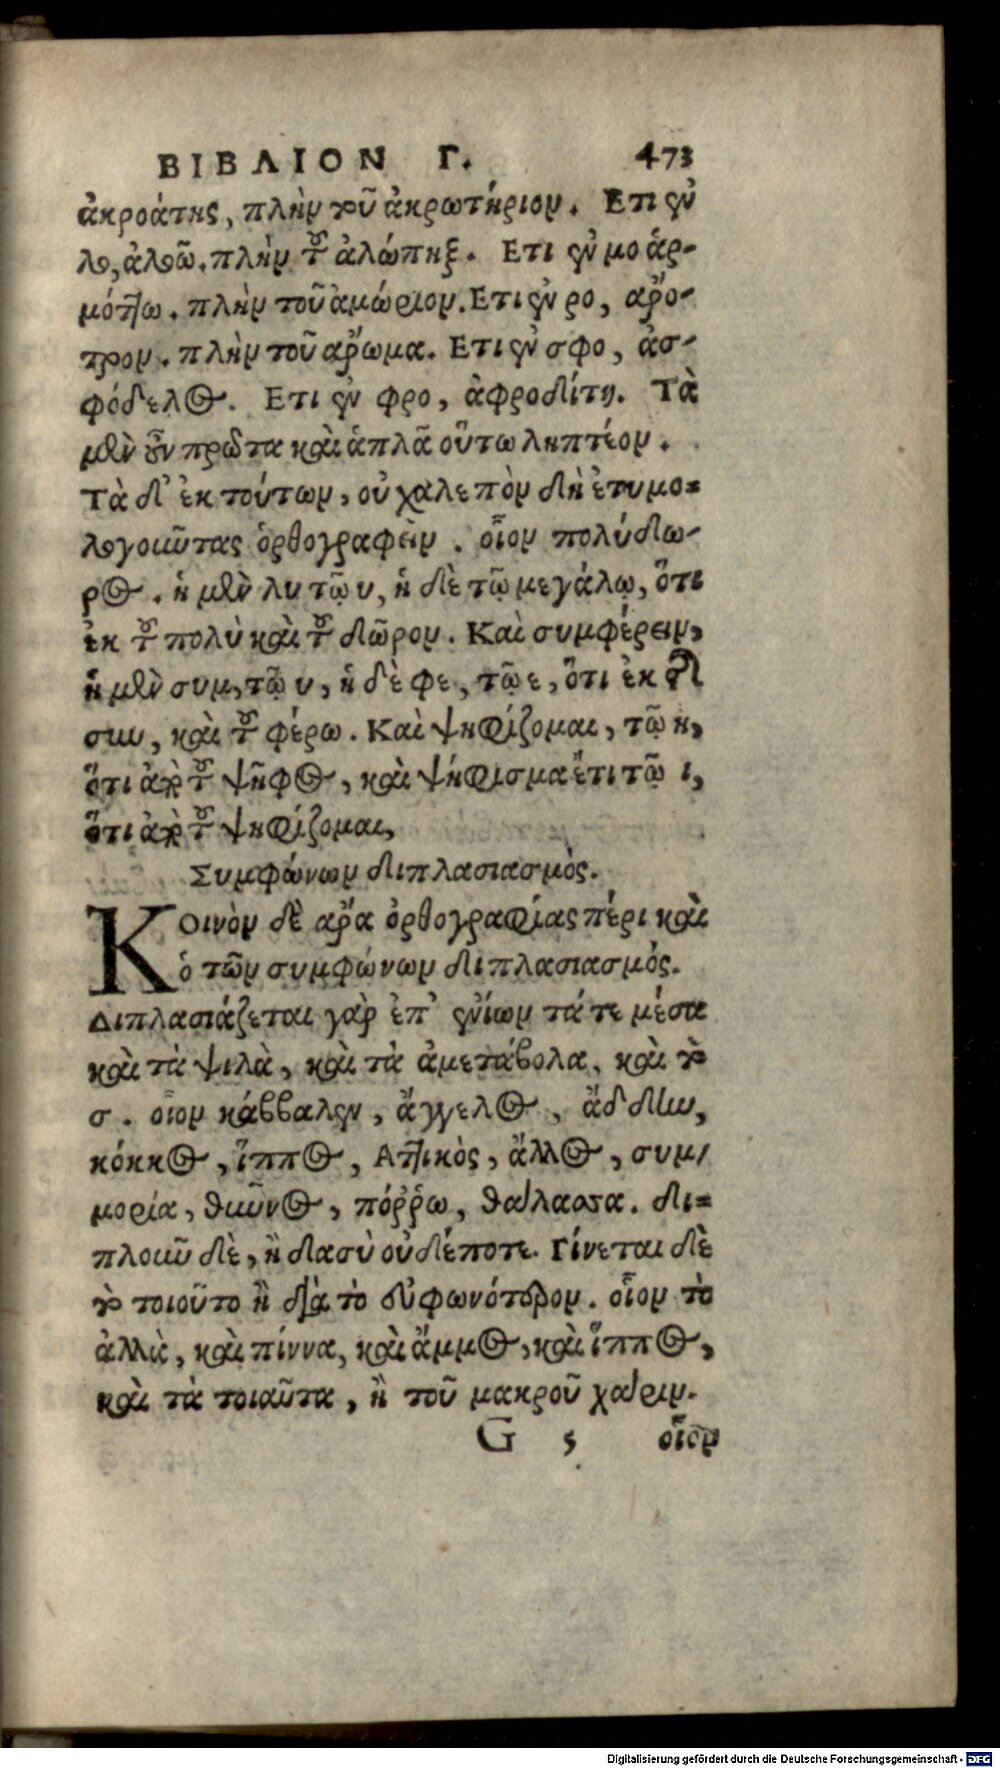 ΒΙΒΛΙΟΝ Γ. 473
ἀκροάτης, πλὴν τοῦ ἀκρωτήριον. Ετι ἐν
λο, ἀλοῶ. πλὴν τοῦ ἀλώπηξ. Ετι ἐν μο ἁρ-
μόττω. πλὴν τοῦ ἀμώριον. Ετι ἐν ρο, αρο-
τρον. πλὴν τοῦ αρωμα. Ετι ἐν σφο, ἀσ-
φόδελος. Ετι ἐν φρο, ἀφροδίτη. Τὰ
μὲν οὖν πρῶτα καὶ ἁπλᾶ οὕτω ληπτέον.
Τὰ δ' ἐκ τούτων, οὐ χαλεπὸν δὴ ἐτυμο=
λογοῦντας ὀρθογραφεῖν. οἷον πολύδω-
ρος. ἡ μὲν λυ τῷ υ, ἡ δὲ τῷ μεγάλῳ, ὅτι
ἐκ τοῦ πολὺ καὶ τοῦ δῶρον. Καὶ συμφέρειν,
ἡ μὲν συμ, τῷ υ, ἡ δὲ φε, τῷ ε, ὅτι ἐκ τῆς
συν, καὶ τοῦ φέρω. Καὶ ψηφίζομαι, τῷ η,
ὅτι παρὰ τοῦ ψῆφος, καὶ ψήφισμα ἔτι τῷ ι,
ὅτι παρὰ τοῦ ψηφίζομαι,
Συμφώνων διπλασιασμὸς.
ΚΟινὸν δὲ αρα ὀρθογραφίας πέρι καὶ
ὁ τῶν συμφώνων διπλασιασμός.
Διπλασιάζεται γὰρ ἐπ' ἐνίων τά τε μέσα
καὶ τὰ ψιλὰ, καὶ τὰ ἀμετάβολα, καὶ τὸ
σ. οἷον κάββαλεν, ἄγγελος, ἄδδην,
κόκκος, ἵππος, Αττικὸς, ἄλλος, συμ/
μορία, θύννος, πόῤῥω, θάλασσα. δι=
πλοῦν δὲ, ἢ δασὺ οὐδέποτε. Γίνεται δὲ
τὸ τοιοῦτο ἢ διὰ τὸ εὐφωνότερον. οἷον τὸ
ἀλλὰ, καὶ πίννα, καὶ ἄμμος, καὶ ἵππος,
καὶ τὰ τοιαῦτα, ἢ τοῦ μακροῦ χάριν.
G 5 οἷον
Digitalisierung gefördert durch die Deutsche Forschungsgemeinschaft - DFG